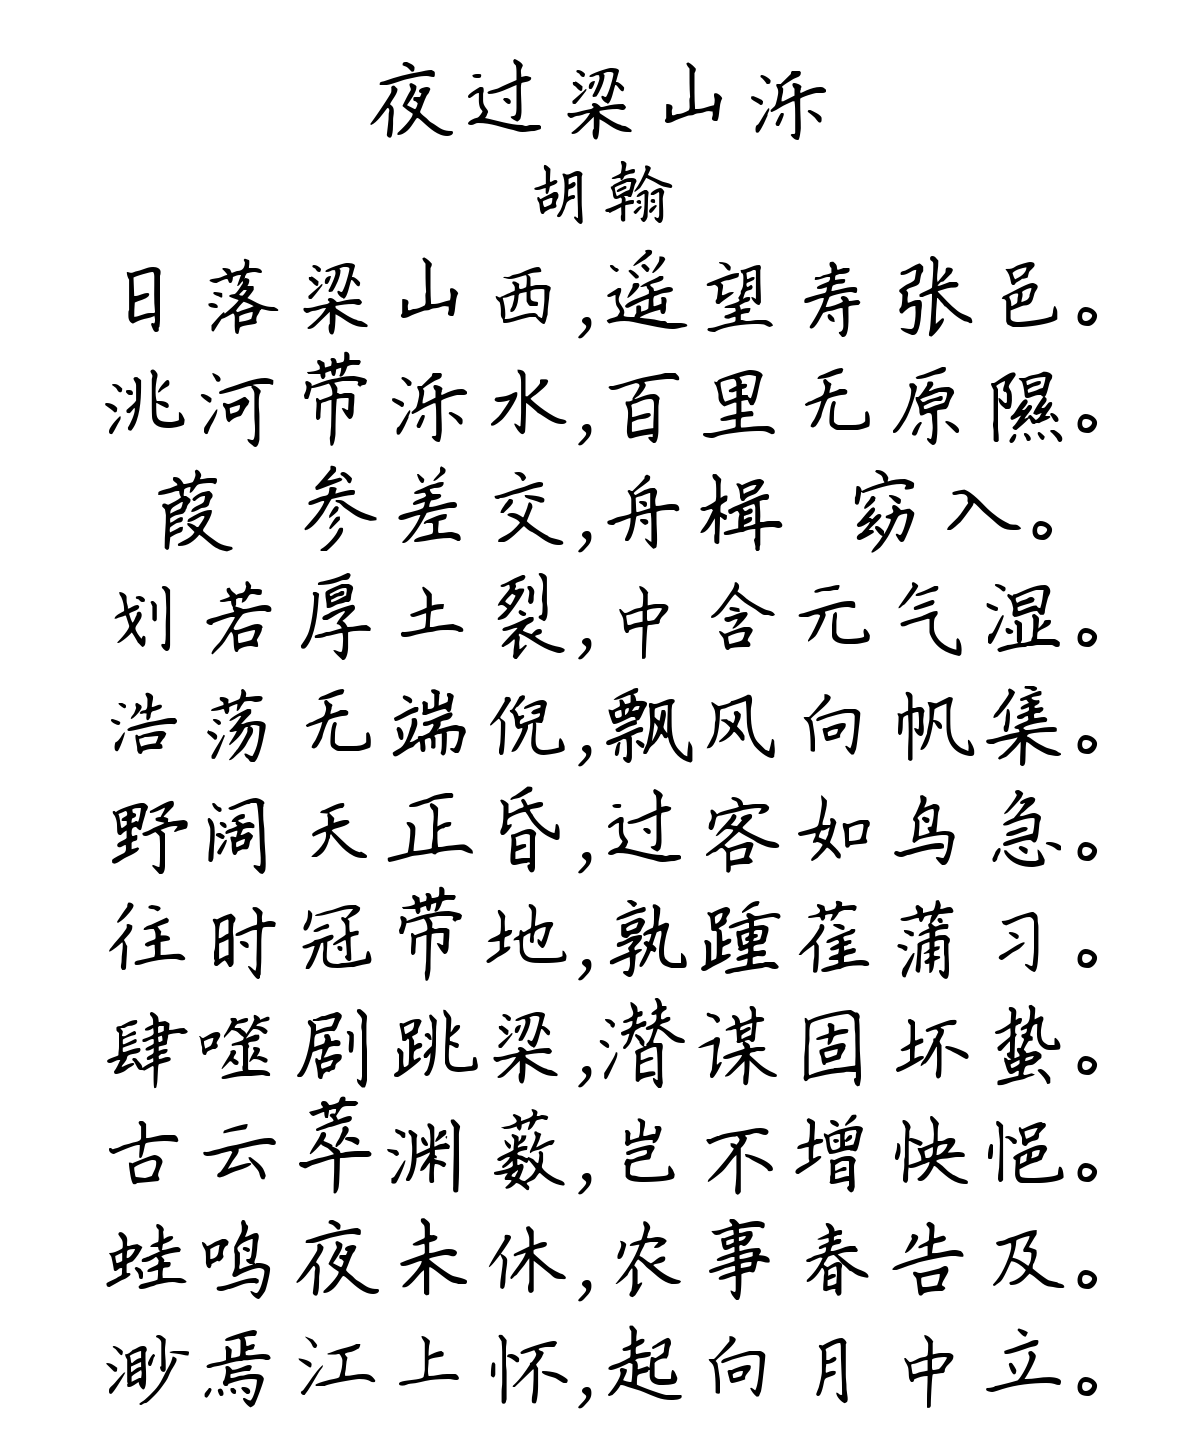 夜过梁山泺
胡翰
日落梁山西,遥望寿张邑。
洮河带泺水,百里无原隰。
葭 参差交,舟楫 窈入。
划若厚土裂,中含元气湿。
浩荡无端倪,飘风向帆集。
野阔天正昏,过客如鸟急。
往时冠带地,孰踵萑蒲习。
肆噬剧跳梁,潜谋固坏蛰。
古云萃渊薮,岂不增怏悒。
蛙鸣夜未休,农事春告及。
渺焉江上怀,起向月中立。